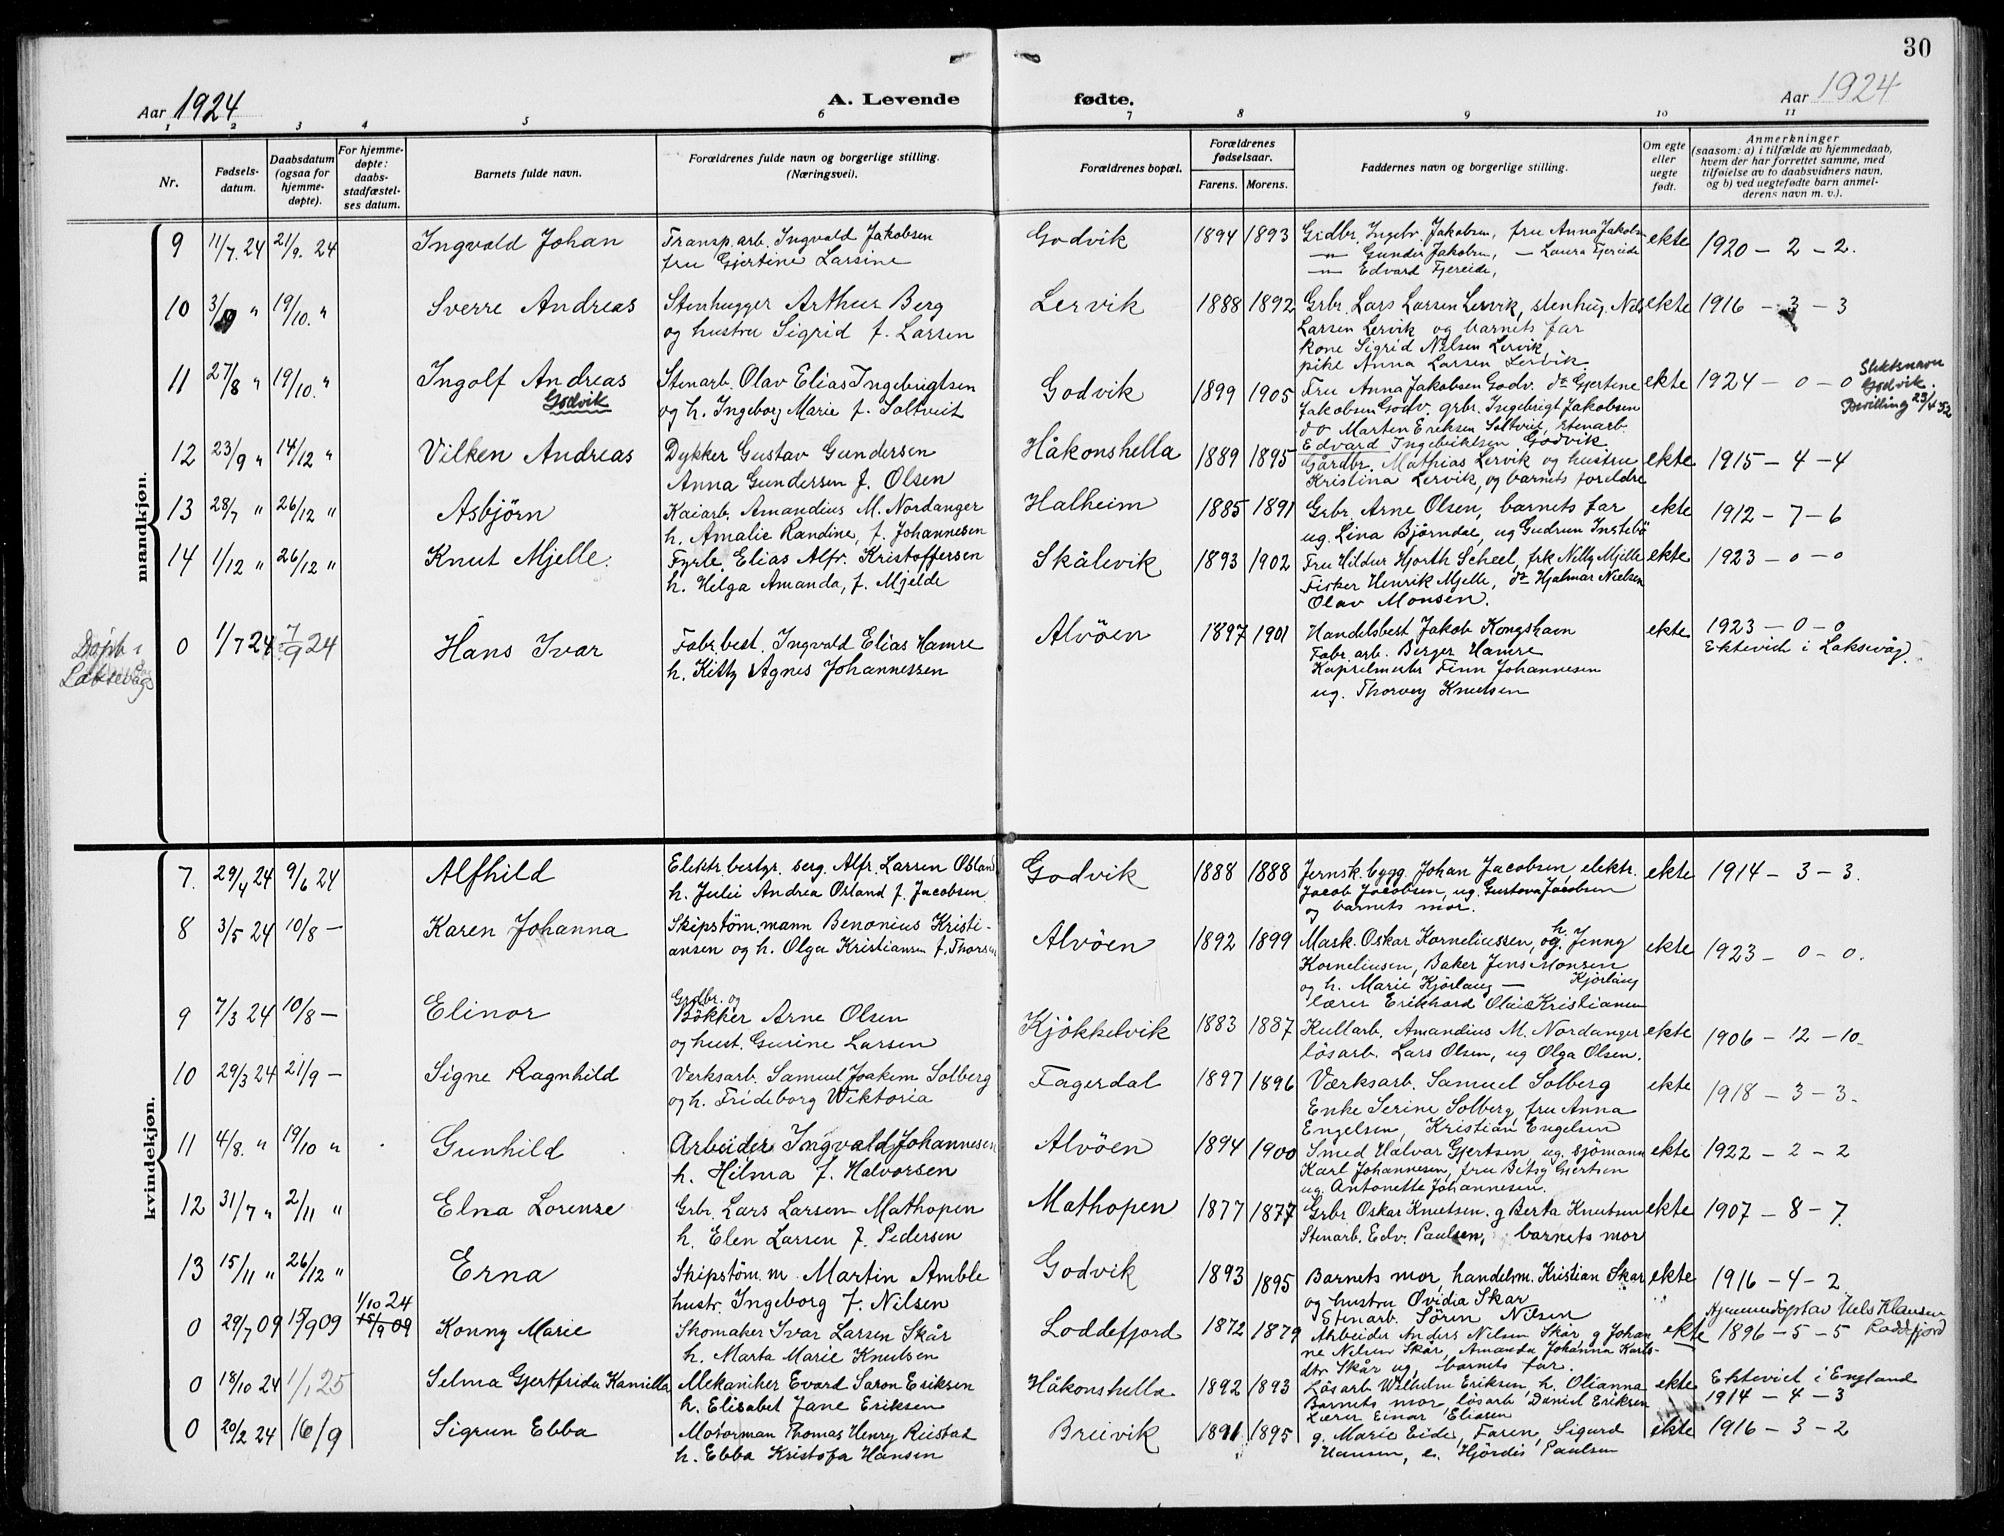 30
Aar 1924
A. Levende fødte.
Aar 1924
1 2 3 4 5 6 7 8 9 10 11
Nr.
Fødsels-datum.
Daabsdatum (ogsaa for hjemme-døpte).
For hjemme-døpte: daabs-stadfæstel-ses datum.
Barnets fulde navn.
Forældrenes fulde navn og borgerlige stilling. (Næringsvei).
Forældrenes bopæl.
Forældrenes fødselsaar.
Farens. Morens.
Faddernes navn og borgerlige stilling.
Om egte eller uegte født.
Anmerkninger (saasom: a) i tilfælde av hjemmedaab, hvem der har forrettet samme, med tilføielse av to daabsvidners navn, og b) ved uegtefødte barn anmel-derens navn m. v.).
mandkjøn.
9 11/7 24 21/9 24 Ingvald Johan
Transp. arb. Ingvald Jakobsen
fru Gjertine Larsine
Godvik 1894 1893
Gidbr. Ingebr. Jakobsen, fru Anna Jakobsen
— Gunder Jakobsen, — Laura Fjereide
— Edvard Fjereide,
ekte 1920 — 2 — 2.
10 3/8 " 19/10. " Sverre Andreas
Stenhugger Arthur Berg
og hustru Sigrid f. Larsen
Lervik 1888 1892
Grbr. Lars Larsen Lervik, stenhug. Nils
Larsen Lervik og barnets far
kone Sigrid Nilsen Lervik
pike Anna Larsen Lervik
ekte 1916 — 3 — 3
11 27/8 " 19/10. " Ingolf Andreas
Godvik
Stenarb. Olav Elias Ingebrigtsen
og h. Ingeborg Marie f. Soltveit
Godvik 1899 1905
Fru Anna Jakobsen Godv. do Gjertine
Jakobsen Godv. grbr. Ingebrigt Jakobsen
do Marten Eriksen Soltveit, stenarb.
Edvard Ingebriktsen Godvik
ekte 1924 — 0 — 0
Slektsnavn
Godvik.
Bevilling 23/4 52
12 23/9 " 14/12 " Vilken Andreas
Dykker Gustav Gundersen
Anna Gundersen f. Olsen
Håkonshella 1889 1895
Gårdbr. Mathias Lervik og hustru
Kristina Lervik, og barnets foreldre
ekte 1915 — 4 — 4
13 28/7 " 26/12 " Asbjörn
Kaiarb. Amandius M. Nordanger
h. Amalie Randine, f. Johannesen
Halheim 1885 1891
Grbr. Arne Olsen, barnets far
ug. Lina Björndal, ug Gudrun Instebö
ekte 1912 — 7 — 6
14 1/12 " 26/12 " Knut Mjelle.
Fyrb. Elias Alfr. Kristoffersen
h. Helga Amanda, f. Mjelde
Skålevik 1893 1902
Fru Hildur Hjorth Scheel, frk Nelly Mjelle
Fisker Henrik Mjelle, do Hjalmar Nielsen
Olav Monsen.
ekte 1923 — 0 — 0
Döpt i
Laksevåg
0 1/7 24 7/9 24 Hans Ivar
Fabr. best. Ingvald Elias Hamre
h. Kitty Agnes Johannessen
Alvöen 1897 1901
Handelsbest Jakob Kongshavn
Fabr. arb. Berger Hamre
Kapelmester Finn Johannesen
ug. Thorveg Knutsen
ekte 1923 — 0 — 0
Ektevied i Laksevåg.
kvindekjøn.
7. 29/4 24 9/6 24 Alfhild
Elektr. bestyr. serg. Alfr. Larsen Osland
h. Julie Andrea Osland f. Jacobsen
Godvik 1888 1888
Jernsk. bygg. Johan Jacobsen, elektr.
Jacob Jacobsen, ug. Gustava Jacobsen
og barnets mor.
ekte 1914 — 3 — 3.
8 3/5 24 10/8 — Karen Johanna
Skipstöm. mann Benonius Kristi-
ansen og h. Olga Kristiansen f. Thorsen
Alvöen 1892 1899
Mask. Oskar Korneliussen, og h. Jenny
Korneliusen, Baker Jens Monsen
og h. Marie Kjörlaug — Kjörlaug
lærer Erikhard Olai Kristiansen
ekte 1923 — 0 — 0.
9 7/3 24 10/8 — Elinor
Grdbr. og
Bökker Arne Olsen
og hust. Gurine Larsen
Kjökkelvik 1883 1887
Kullarb. Amandius M. Nordanger
lösarb. Lars Olsen, ug Olga Olsen.
ekte 1906 — 12 — 10
10 29/3 24 21/9 — Signe Ragnhild
Verksarb. Samuel Joakim Solberg
og h. Frideborg Wiktoria
Fagerdal 1897 1896
Værksarb. Samuel Solberg
Enke Serine Solberg, fru Anna
Engelsen, Kristian Engelsen
ekte 1918 — 3 — 3.
11 4/8. " 19/10 " Gunhild
Arbeider Ingvald Johannesen
h. Hilma f. Halvorsen
Alvöen 1894 1900
Smed Halvar Gjertsen, ug. sjömann
Karl Johannesen, fru Bitsy Gjertsen
ug. Antonette Johannesen.
ekte 1922 — 2 — 2
12 31/7 " 2/11 " Elna Lorense
Grbr. Lars Larsen Mathopen
h. Elen Larsen f. Pedersen
Mathopen 1877 1877
Grbr Oskar Knutsen. g Berta Knutsen
Stenarb. Edv. Paulsen, barnets mor
ekte 1907 — 8 — 7.
13 15/11 " 26/12 " Erna
Skipstöm. m. Martin Amble
hustr. Ingeborg f. Nilsen
Godvik 1893 1895
Barnets mor, handelsm. Kristian Skar
og hustru Ovidia Skar
Stenarb. Sören Nilsen
ekte 1916 — 4 — 2
0 29/7 09 15/9 09 1/10 24 15/9 09 Konny Marie
Skomaker Ivar Larsen Skår
h. Marta Marie Knutsen
Loddefjord 1872 1879
Arbeider Anders Nilsen Skår, g Johan
ne Nilsen Skår, Amanda Johanna Karls-
dtr Skår ug, barnets far.
ekte 1896 — 5 — 5
Hjemmedöpt av Nils Klausen
Loddefjord
0 18/10 24 1/1 25 Selma Gjertfrida Kamella
Mekaniker Evard Saron Eriksen
h. Elisabet Jane Eriksen
Håkonshella 1892 1893
Lösarb Wilhelm Eriksen, h. Olianna
Barnets mor, lösarb Daniel Eriksen
Lærer Einar Eliasen
ekte Ektevied i England
1914 — 4 — 3
0 20/2 24 16/9 Sigrun Ebba
Motorman Thomas Henry Reistad
h. Ebba Kristofa Hansen
Breivik 1891 1895
g. Marie Eide, Faren, Sigurd
Hansen, e. Hjördis Paulsen
ekte 1916 — 3 — 2